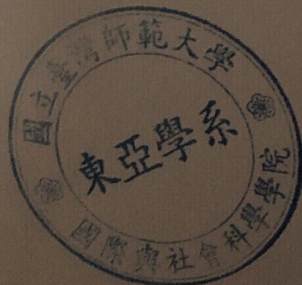 國立臺灣師範大學
東亞學系
國際與社會科學學院